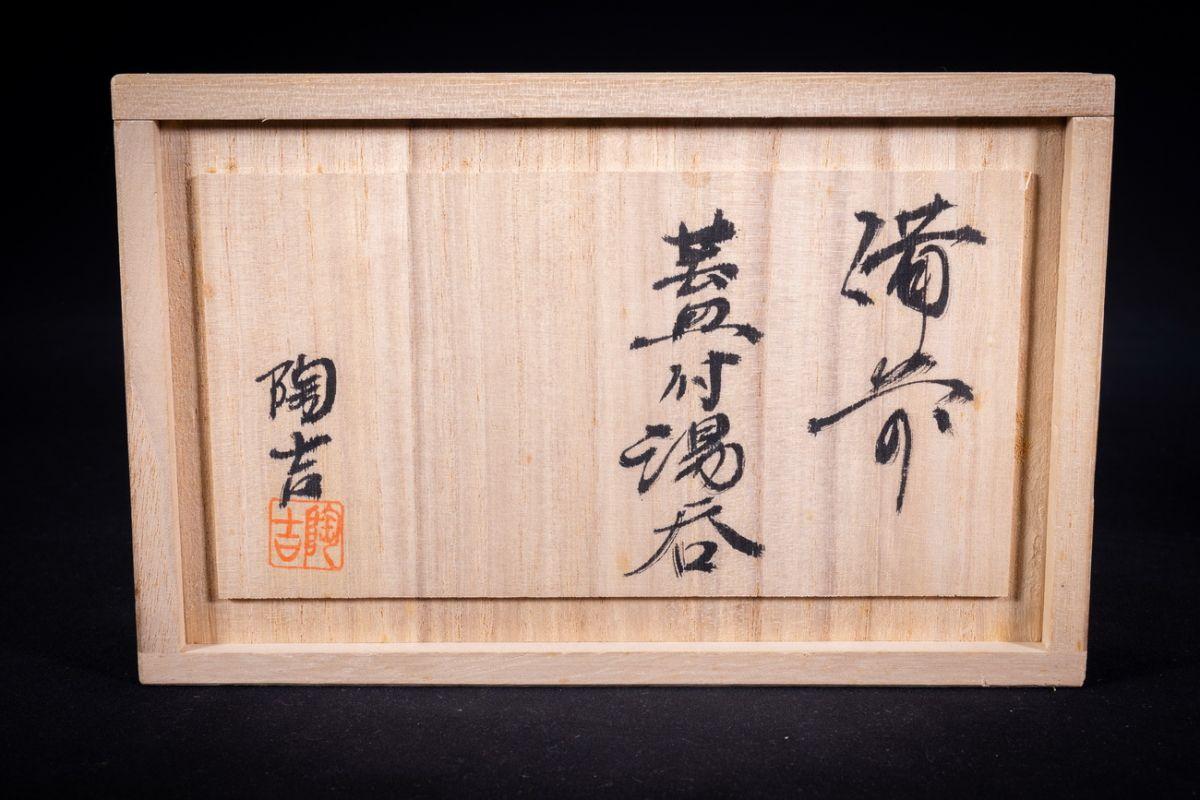 備前
蓋付湯呑
陶吉
陶吉